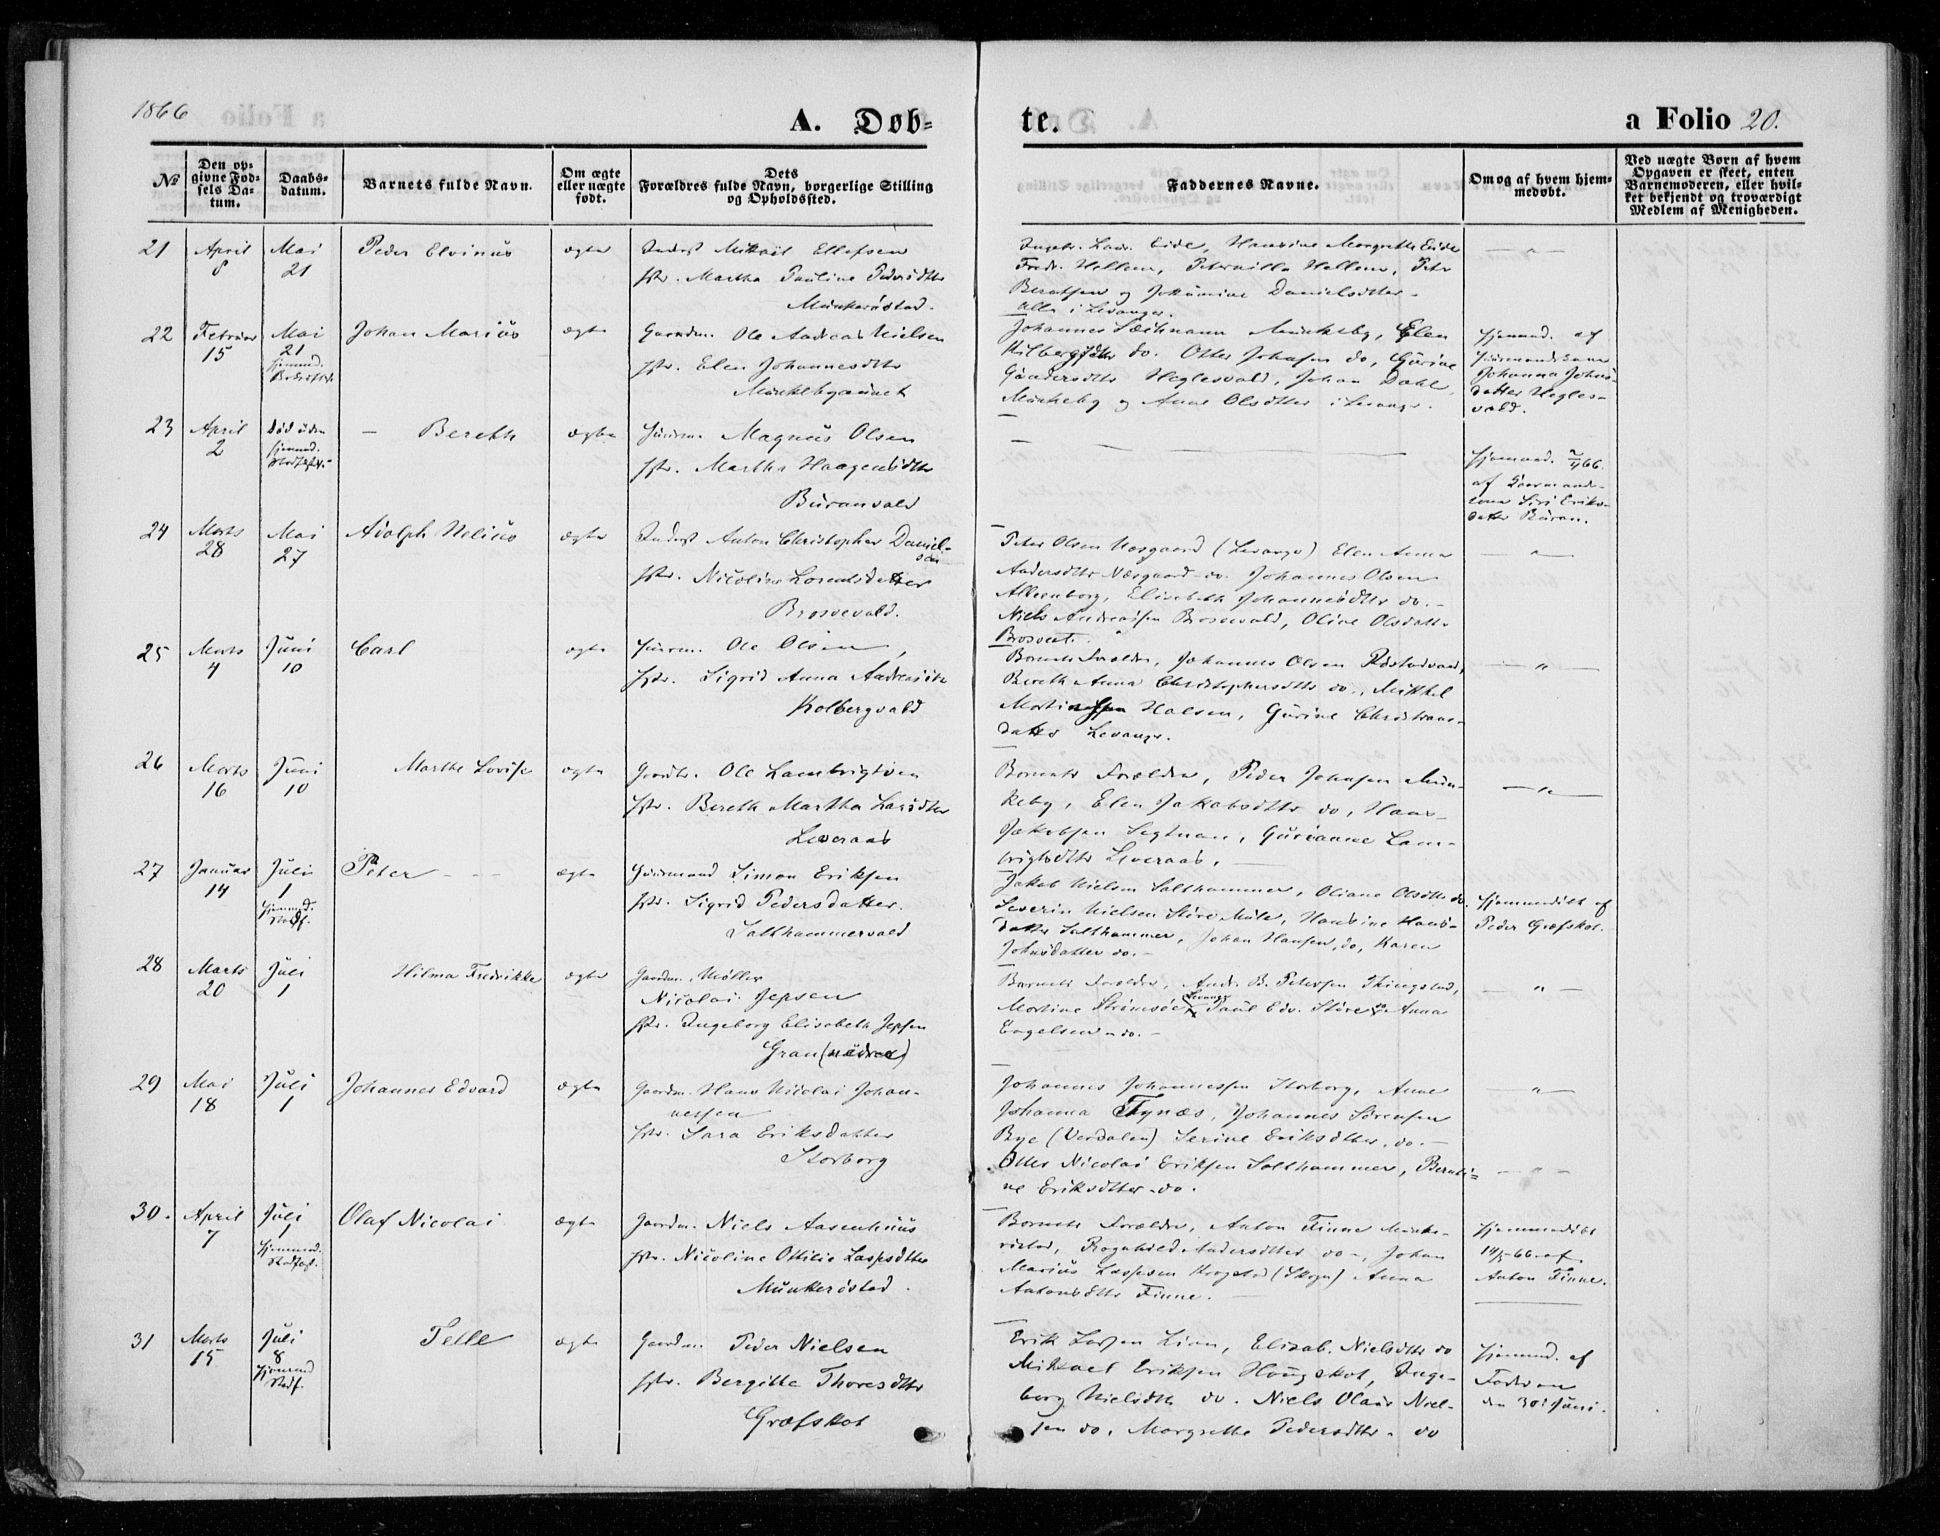 1866
A. Døb-
te.
a Folio 20.
№
Den op-
givne Fød-
sels Da-
tum.
Daabs-
datum.
Barnets fulde Navn.
Om ægte
eller uægte
født.
Dets
Forældres fulde Navn, borgerlige Stilling
og Opholdssted.
Faddernes Navne.
Om og af hvem hjem-
medøbt.
Ved uægte Børn af hvem
Opgaven er skeet, enten
Barnemoderen, eller hvil-
ket bekjendt og troværdigt
Medlem af Menigheden.
21
April
8
Mai
21
Peder Elvinus
ægte
Inderst Mikael Ellefsen
Hstr. Martha Pauline Pedersdtr
Munkerøstad.
Ingebr. Eide, Hansine Margrethe Eide
Fredr. Hallem, Peternilla Hallem, Petr
Berntsen og Jokumine Danielsdtter
alle i Levanger.
22
Februar
15
Mai
21
hjemmed.
Johan Marius
ægte
Gaardm. Ole Andreas Nielsen
Hstr. Elen Johannesdtr
Munkebyaunet
Johannes Munkeby, Elen
do. Otter Johnsen do, Gurine
Gundersdtr Heglesvald, Johan Dahl
Munkeby og Anne Olsdtter i Levanger.
hjemmed. af
Huusmandskone
Johanna Johns-
datter Hegles-
vald.
23
April
2
Død uden
hjemmed.
Stadfæst.
- Bereth
ægte
Huusm. Magnus Olsen
Hstr. Martha Haagensdtr
Buranvald
hjemmed. 2/4 66.
af Gaardmands-
kone Siri Eriks-
datter Buran.
24
Marts
28
Mai
27
Adolph Nelius
ægte
Inderst Anton Christopher Daniel-
sen
Hstr. Nicoline Lorentsdatter
Brosvevald.
Peter Olsen Næsgaard (Levanger) Elen Anna
Andersdtr Næsgaard do. Johannes Olsen
Elisabeth Johannesdtr do.
Niels Andreassen Brosvevald, Oline Olsdatter
25
Marts
4
Juni
10
Carl
ægte
Huusm. Ole Olsen,
Hstr. Sigrid Anna Andreasdtr
Kolbergvald
Barnets Forældre, Johannes Olsen
Bereth Anna Christophersdtr do., Mikkel
Halsen, Gurine Christians-
datter Levanger.
26
Marts
16
Juni
10
Marthe Lovise
ægte
Gaardbr. Ole Lambrigtsen
Hstr. Bereth Martha Larsdtr
Leveraas
Barnets Forældre, Peder Johnsen Mun-
keby, Elen Jakobsdtr do, Hans
Jakobsen Segtnan, Gurianne Lam-
brigtsdtr Leveraas.
27
Januar
14
Juli
1
hjemmed.
Stadf.
Peter - -
ægte
Huusmand Simon Eriksen
Hstr. Sigrid Pedersdatter.
Salthammervald
Jakob Nielsen Salthammer, Oliane Olsdtr do.
Severin Nielsen Støre Mule, Hansine Hans-
datter Salthammer, Johan Hansen do, Karen
Johnsdatter do.
Hjemmedøbt af
Peder Græfskot.
28
Marts
20
Juli
1
Hilma Fredrikke
ægte
Gaardm. Møller
Nicolai Jepsen
Hstr. Ingeborg Elisabeth Jepsen
Gran (nedre)
Barnets Forældre, Andr. B. Petersen Thingstad,
Martine Strømsøe Levanger Paul Edv. Støre do Anna
Engelsen do.
29
Mai
18
Juli
1
Johannes Edvard
ægte
Gaardm. Hans Nicolai Johan-
nessen
Hstr. Sara Eriksdatter
Storborg
Johannes Johannessen Storborg, Anne
Johanna Tynæs, Johannes Sørensen
Bye (Verdalen) Serine Eriksdtter do.
Otter Nicolai Eriksen Salthammer, Bernti-
ne Eriksdtter do.
30.
April
7
Juli
1
hjemmed.
Stadfæst.
Olaf Nicolai
ægte
Gaardm. Niels Aasenhuus
Hstr. Nicoline Ottilie Caspersdtter
Munkerøstad.
Barnets Forældre, Anton Finne Munke-
røstad, Ragnhild Andersdtter do, Johan
Marius Caspersen Krogstad (Skogn) Anna
Antonsdtr Finne.
hjemmedøbt
14/5 66 af
Anton Finne.
31
Marts
15
Juli
8
hjemmed
Stadf.
Telle
ægte
Gaardm. Peder Nielsen
Hstr. Bergitte Thoresdtr
Græfskot
Erik Larsen Lian, Elisab. Nielsdtr do
Mikael Eriksen Hougskot, Inge-
borg Nielsdtr do. Niels Olaus Niel-
sen do, Margrethe Pedersdtter do
hjemmed. af
Faderen
den 30te Juni.